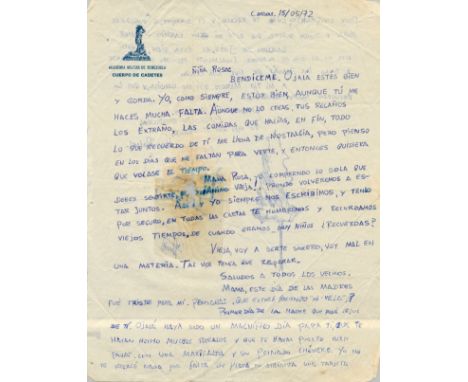 Caracas. 15/05/72
ACADEMIA MILITAR DE VENEZUELA
CUERPO DE CADETES
Niña Rosa:
Bendíceme. Ojalá estés bien
y gorda. Yo, como siempre, estoy bien, aunque tú me
haces mucha falta. Aunque no lo creas, tus regaños
los extraño, las comidas que hacías, en fin, todo
lo que recuerdo de ti me llena de nostalgia, pero pienso
en los días que me faltan para verte, y entonces quisiera
que volase el tiempo.
Mamá Rosa, yo comprendo lo sola que
debes sentirte, vieja! Pronto volveremos a es-
tar juntos. y yo siempre nos escribimos, y tenlo
por seguro, en todas las cartas te nombramos y recordamos
viejos tiempos, de cuando éramos muy niños ¿Recuerdas?
Vieja, voy a serte sincero, voy mal en
una materia. Tal vez tenga que reparar.
Saludos a todos los vecinos.
Mamá, este día de las madres
fué triste para mí. Pensaba, que estará haciendo mi vieja?
Primer día de la madre que paso lejos
de ti. Ojalá haya sido un magnífico día para ti, que te
hayan hecho muchos regalos y que te hayas puesto bien
con una margarita y su peinado chévere. Yo no
te mandé nada por falta de una tarjeta